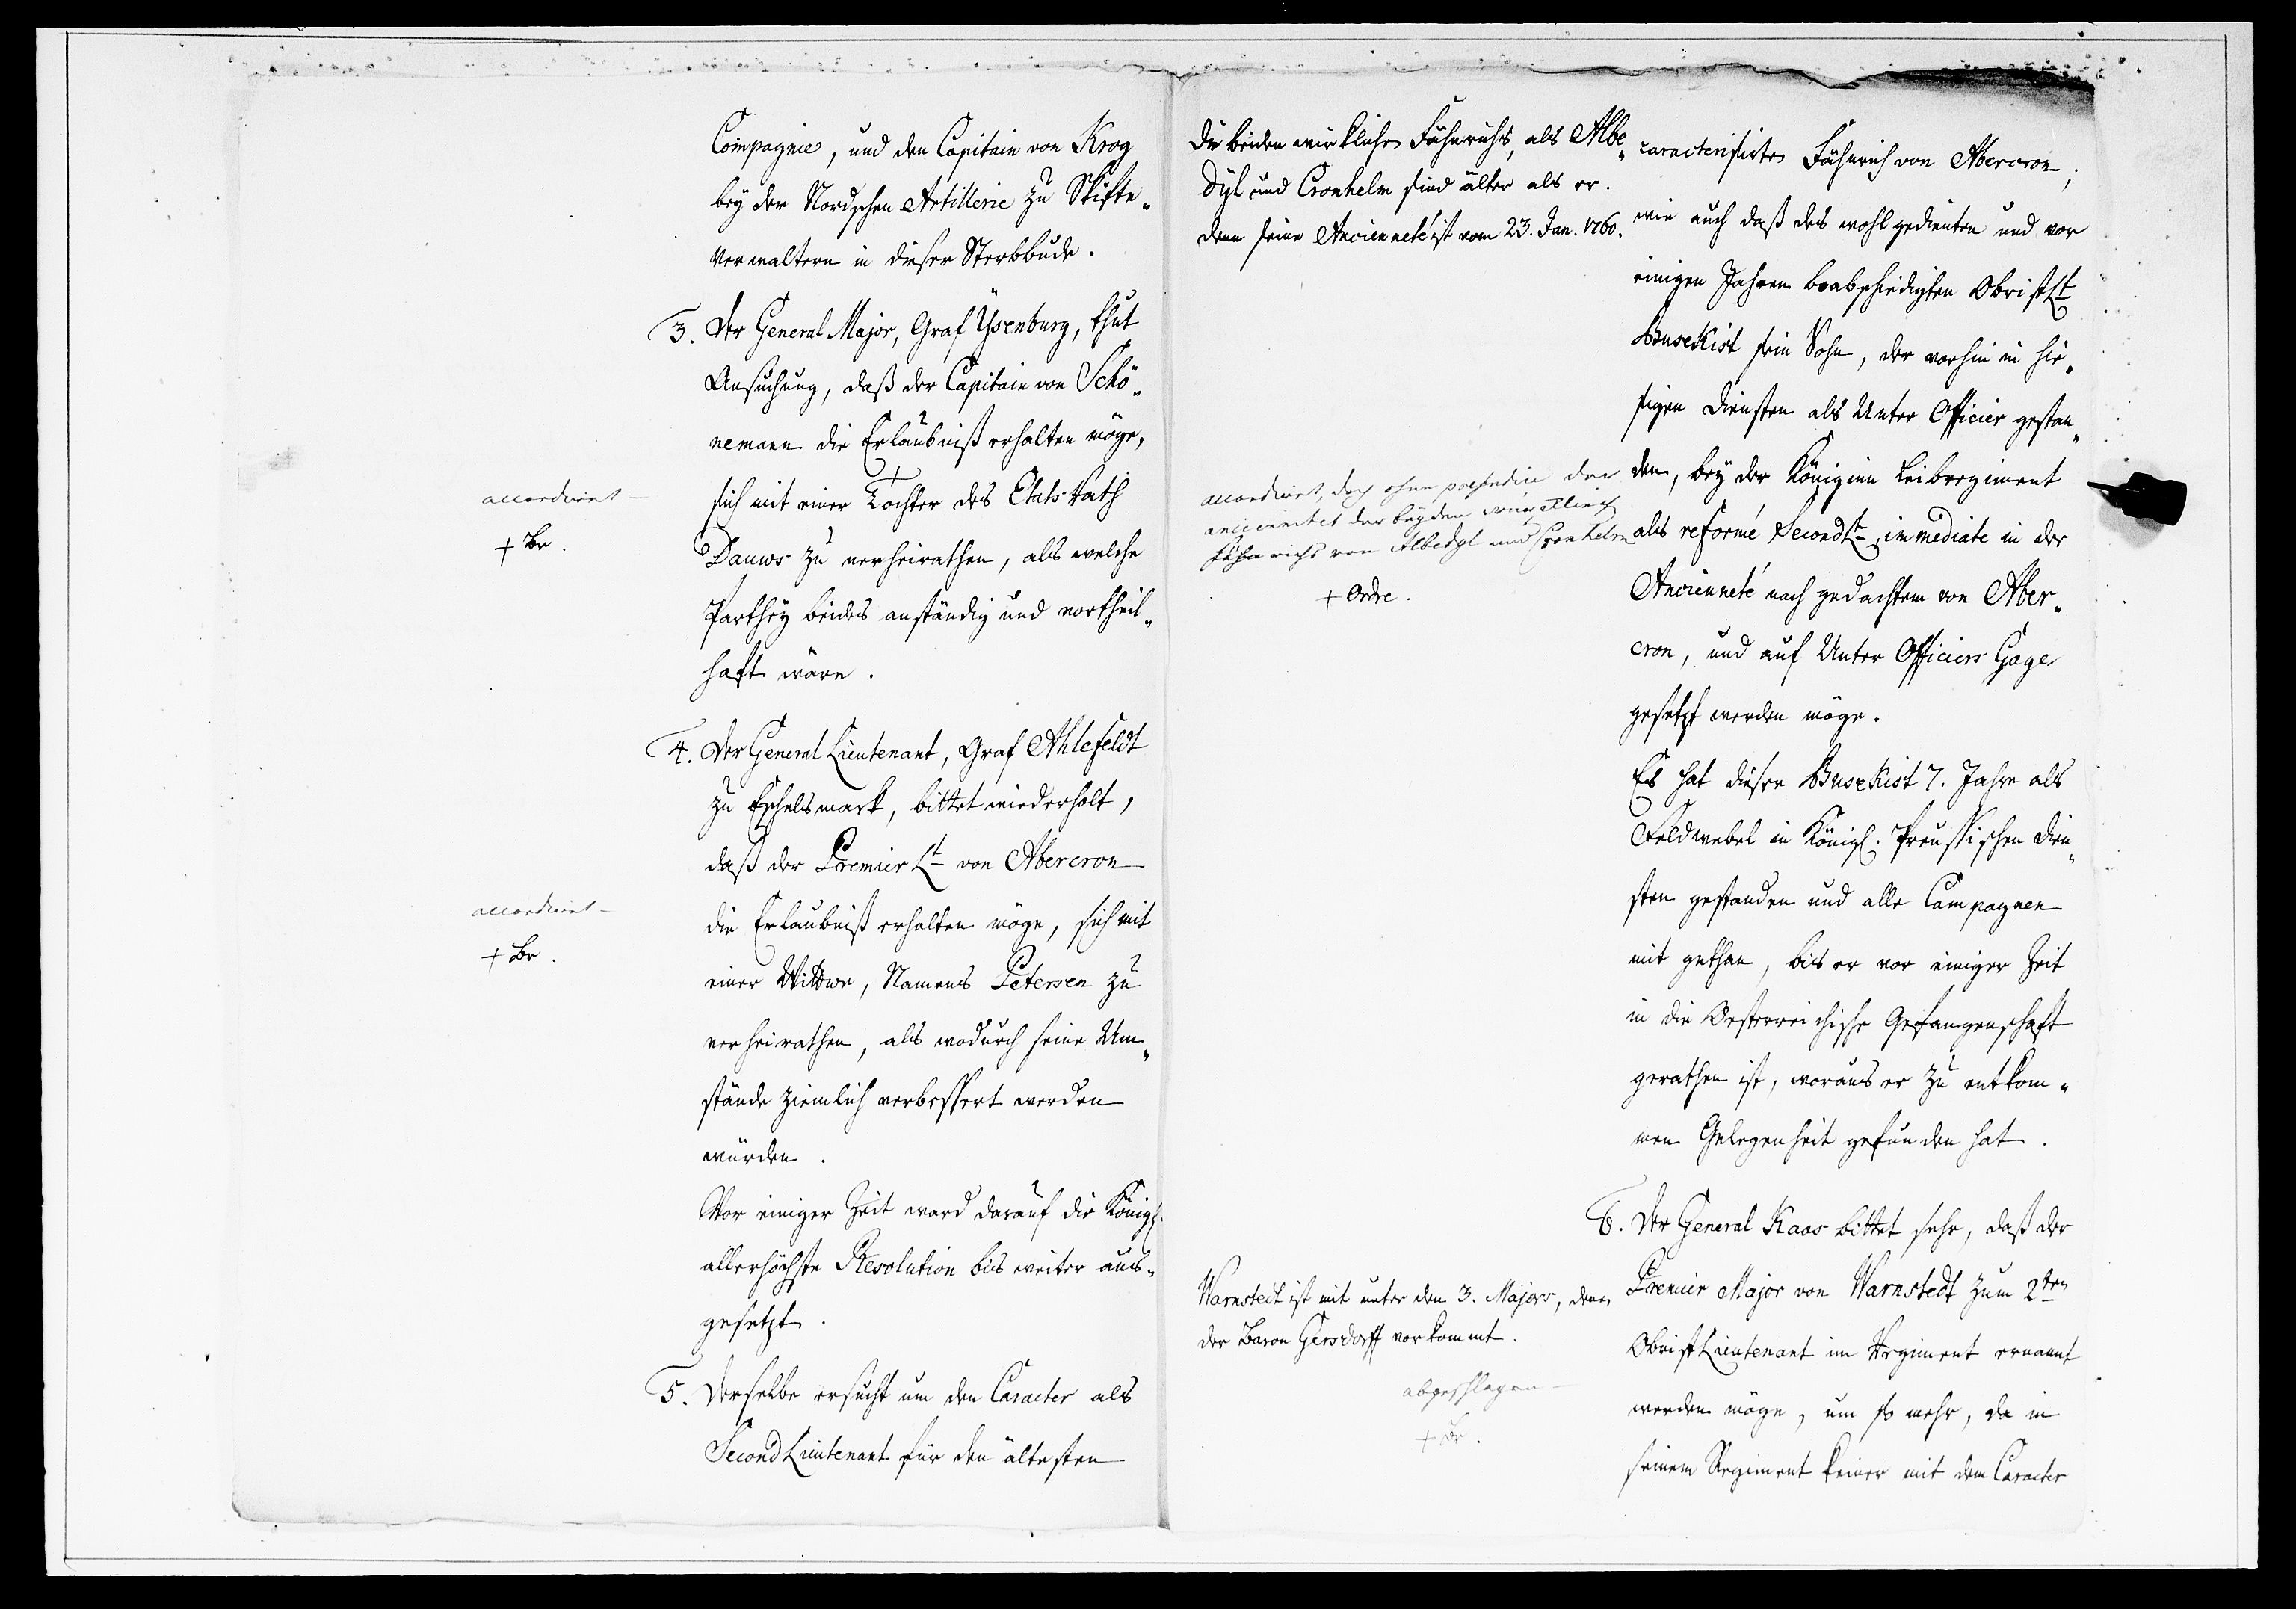 Compagnie, und den Capitain von Krog
bey der Nordschen Artillerie zu Skifte„
Verwaltern in dieser Sterbbude.
3. Der General Major, Graf Ysenburg, thut
Ansuchung, daß der Capitain von Schö„
nemann die Erlaubniß erhalten möge,
sich mit einer Tochter des Etats Rath
Dauws zu verheirathen, als welche
Parthey beides anständig und vortheil„
haft wäre.
accordiret
+ Br.
4. Der General Lieutenant, Graf Ahlefeldt
zu Eschelsmark, bittet wiederholt,
daß der Premier Lt von Abercron
die Erlaubniß erhalten möge, sich mit
einer Wittwe, Namens Petersen zu
verheirathen, als wodurch seine Um„
stände ziemlich verbessert werden
würden.
accordiret
+ Br.
Vor einiger Zeit ward darauf die Königl.
allerhöchste Resolution bis weiter aus„
gesetzt.
5. Derselbe ersucht um den Caracter als
Second Lieutenant für den ältesten
Die beiden wirkliche Fähnrichs, als Albe„
dyl und Cronhelm sind älter als er.
denn seine Ancienneté ist vom 23. Jan. 1760.
caracterisirten Fähnrich von Abercron,
wie auch daß des wohlgedienten und vor
einigen Jahren beabschiedigten ObristLt
BuseKist sein Sohn, der vorhin in hie„
sigen Diensten als Unter Officier gestan„
den, bey der Königinn Leibregiment
als reformé SecondLt, immediate in der
Ancienneté nach gedachtem von Aber„
cron, und auf Unter Officiers Gage
gesetzt werden möge.
accordiret, doch ohne præjudice der
anciennitet der beyden würcklich
Fähnrichs von Albedyl und Cronhelm
+ Ordre.
Es hat dieser BuseKist 7. Jahre als
Feldwebel in Königl. Preussischen Dien„
sten gestanden und alle Campagnen
mit gethan, bis er vor einiger Zeit
in die Oesterreichische Gefangenschaft
gerathen ist, woraus er zu entkom„
men Gelegenheit gefunden hat.
6. Der General Kaas bittet sehr, daß der
Premier Major von Warnstedt zum 2ten
Obrist Lieutenant im Regiment ernannt
werden möge, um so mehr, da in
seinem Regiment keiner mit dem Caracter
Warnstedt ist mit unter den 3. Majors, denen
der Baron Gersdorff vorkommt.
abgeschlagen
+ Br.